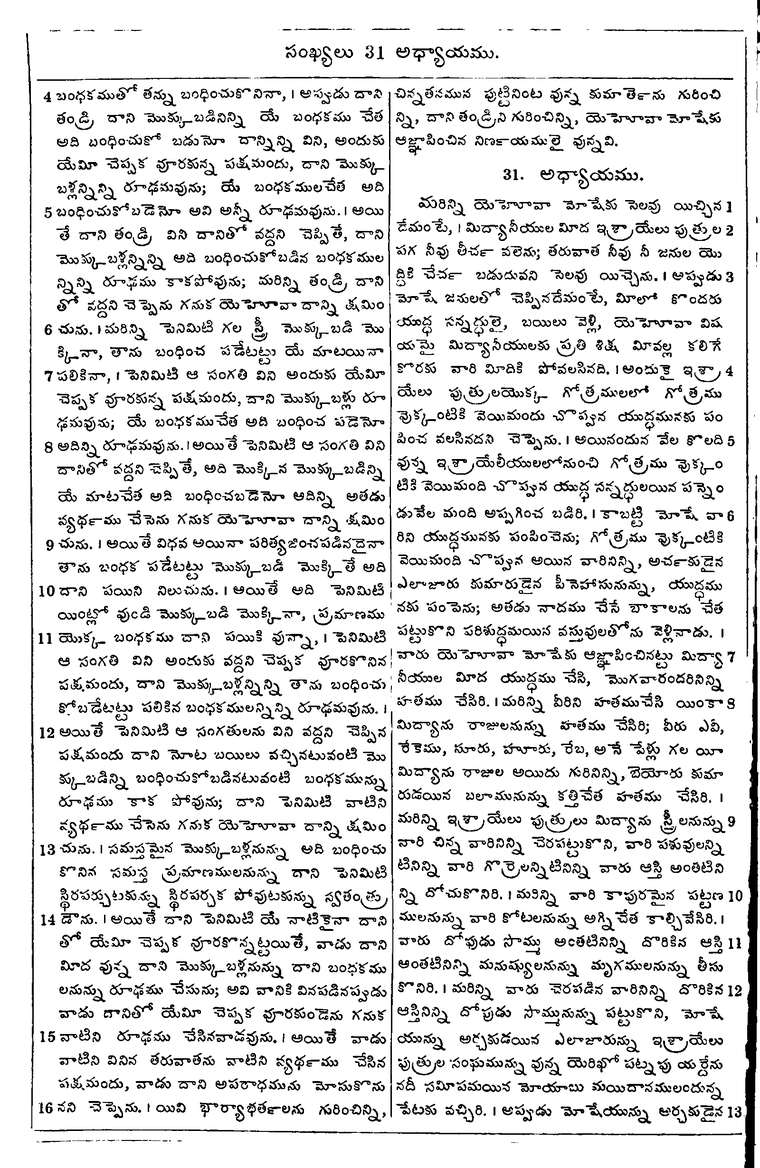 సంఖ్యలు 31 అధ్యాయము.
4 బంధకముతో తన్ను బంధించుకొనినా, । అప్పుడు దాని
తండ్రి దాని మొక్కుబడినిన్ని యే బంధకము చేత
అది బంధించుకో బడునో దాన్నిన్ని విని, అందుకు
యేమీ చెప్పక వూరకున్న పక్షమందు, దాని మొక్కు
బళ్లన్నిన్ని రూఢమవును; యే బంధకములచేత అది
5 బంధించుకోబడెనో అవి అన్నీ రూఢమవును. । అయి
తే దాని తండ్రి విని దానితో వద్దని చెప్పితే, దాని
మొక్కుబళ్లన్నిన్ని అది బంధించుకోబడిన బంధకముల
న్నిన్ని రూఢము కాకపోవును; మరిన్ని తండ్రి దాని
తో వద్దని చెప్పెను గనుక యెహోవా దాన్ని క్షమిం
6 చును. । మరిన్ని పెనిమిటి గల స్త్రీ మొక్కుబడి మొ
క్కినా, తాను బంధించ పడేటట్టు యే మాటయినా
7 పలికినా, । పెనిమిటి ఆ సంగతి విని అందుకు యేమీ
చెప్పక వూరకున్న పక్షమందు, దాని మొక్కుబళ్లు రూ
ఢమవును; యే బంధకముచేత అది బంధించ పడెనో
8 అదిన్ని రూఢమవును. । అయితే పెనిమిటి ఆ సంగతి విని
దానితో వద్దని చెప్పితే, అది మొక్కిన మొక్కుబడిన్ని
యే మాటచేత అది బంధించబడెనో ఆదిన్ని అతడు
వ్యర్థము చేసెను గనుక యెహోవా దాన్ని క్షమిం
9 చును. । అయితే విధవ అయినా పరిత్యజించపడినదైనా
తాను బంధక పడేటట్టు మొక్కుబడి మొక్కితే అది
10 దాని పయిని నిలుచును. । ఆయితే అది పెనిమిటి
యింట్లో వుండి మొక్కుబడి మొక్కినా, ప్రమాణము
11 యొక్క బంధకము దాని పయికి వున్నా, । పెనిమిటి
ఆ సంగతి విని అందుకు వద్దని చెప్పక వూరకొనిన
పక్షమందు, దాని మొక్కుబళ్లన్నిన్ని తాను బంధించు
కోబడేటట్టు పలికిన బంధకములన్నిన్ని రూఢమవును. ।
12 అయితే పెనిమిటి ఆ సంగతులను విని వద్దని చెప్పిన
పక్షమందు దాని నోట బయిలు వచ్చినటువంటి మొ
క్కుబడిన్ని బంధించుకోబడినటువంటి బంధకమున్ను
రూఢము కాక పోవును; దాని పెనిమిటి వాటిని
వ్యర్థము చేసెను గనుక యెహోవా దాన్ని క్షమిం
13 చును. । సమస్తమైన మొక్కుబళ్లనున్ను అది బంధించు
కొనిన సమస్త ప్రమాణములనున్ను దాని పెనిమిటి
స్థిరపర్చుటకున్ను స్థిరపర్చక పోవుటకున్ను స్వతంత్రు
14 డౌను. । అయితే దాని పెనిమిటి యే నాటికైనా దాని
తో యేమీ చెప్పక వూరకొన్నట్టయితే, వాడు దాని
మీద వున్న దాని మొక్కుబళ్లనున్ను దాని బంధకము
లనున్ను రూఢము చేసును; అవి వానికి వినపడినప్పుడు
వాడు దానితో యేమీ చెప్పక వూరకుండెను గనుక
15 వాటిని రూఢము చేసినవాడవును. । అయితే వాడు
వాటిని వినిన తరువాతను వాటిని వ్యర్థము చేసిన
పక్షమందు, వాడు దాని అపరాధమును మోసుకొను
16 నని చెప్పెను. । యివి భార్యాభర్తలను గురించిన్ని,
చిన్నతనమున పుట్టినింట వున్న కుమార్తెను గురించి
న్ని, దాని తండ్రిని గురించిన్ని, యెహోవా మోషేకు
ఆజ్ఞాపించిన నిర్ణయములై వున్నవి.
31. అధ్యాయము.
మరిన్ని యెహోవా మోషేకు సెలవు యిచ్చిన 1
దేమంటే, । మిద్యానీయుల మీద ఇశ్రాయేలు పుత్రుల 2
పగ నీవు తీర్చ వలెను; తరువాత నీవు నీ జనుల యొ
ద్దికి చేర్చ బడుదువని సెలవు యిచ్చెను. । అప్పుడు 3
మోషే జనులతో చెప్పినదేమంటే, మీలో కొందరు
యుద్ధ సన్నద్ధులై, బయిలు వెళ్లి, యెహోవా విష
యమై మిద్యానీయులకు ప్రతి శిక్ష మీవల్ల కలిగే
కొరకు వారి మీదికి పోవలసినది. । అందుకై ఇశ్రా 4
యేలు పుత్రులయొక్క గోత్రములలో గోత్రము
వొక్కంటికి వెయిమందు చొప్పున యుద్ధమునకు పం
పించ వలసినదని చెప్పెను. । అయినందున వేల కొలది 5
వున్న ఇశ్రాయేలీయులలోనుంచి గోత్రము వొక్కం
టికి వెయిమంది చొప్పున యుద్ధ సన్నద్ధులయిన పన్నెం
డువేల మంది అప్పగించ బడిరి. । కాబట్టి మోషే వా 6
రిని యుద్ధమునకు పంపించెను; గోత్రము వొక్కంటికి
వెయిమంది చొప్పున అయిన వారినిన్ని, అర్చకుడైన
ఎలాజారు కుమారుడైన పీనెహాసునున్ను, యుద్ధము
నకు పంపెను; అతడు నాదము చేసే బాకాలను చేత
పట్టుకొని పరిశుద్ధమయిన వస్తువులతోను వెళ్లినాడు. ।
వారు యెహోవా మోషేకు ఆజ్ఞాపించినట్టు మిద్యా 7
నీయుల మీద యుద్ధము చేసి, మొగవారందరినిన్ని
హతము చేసిరి. । మరిన్ని వీరిని హతముచేసి యింకా 8
మిద్యాను రాజులనున్ను హతము చేసిరి; వీరు ఎవీ,
రేకెము, సూరు, హూరు, రేబ, అనే పేళ్లు గల యీ
మిద్యాను రాజుల అయిదు గురినిన్ని, బెయోరు కుమా
రుడయిన బలామునున్ను కత్తిచేత హతము చేసిరి. ।
మరిన్ని ఇశ్రాయేలు పుత్రులు మిద్యాను స్త్రీలనున్ను 9
వారి చిన్న వారినిన్ని చెరపట్టుకొని, వారి పశువులన్ని
టినిన్ని వారి గొర్రెలన్నిటినిన్ని వారు ఆస్తి అంతటిని
న్ని దోచుకొనిరి. । మరిన్ని వారి కాపురమైన పట్టణ 10
ములనున్ను వారి కోటలనున్ను అగ్నిచేత కాల్చివేసిరి. ।
వారు దోపుడు సొమ్ము అంతటినిన్ని దొరికిన ఆస్తి 11
అంతటినిన్ని మనుష్యులనున్ను మృగములనున్ను తీసు
కొనిరి. । మరిన్ని వారు చెరపడిన వారినిన్ని దొరికిన 12
ఆస్తినిన్ని దోపుడు సొమ్మునున్ను పట్టుకొని, మోషే
యున్ను అర్చకుడయిన ఎలాజారున్ను ఇశ్రాయేలు
పుత్రుల సంఘమున్ను వున్న యెరిఖో పట్నపు యర్దేను
నదీ సమీపమయిన మోయాబు మయిదానములందున్న
పేటకు వచ్చిరి. । అప్పుడు మోషేయున్ను అర్చకుడైన 13